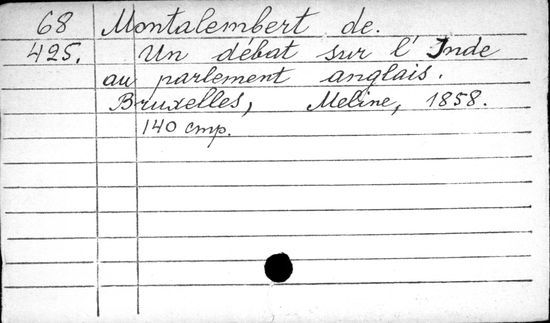 68 Montalembert de.
425. Un débat sur l' Inde
au parlement anglais.
Bruxelles, Meline, 1858.
140 стр.